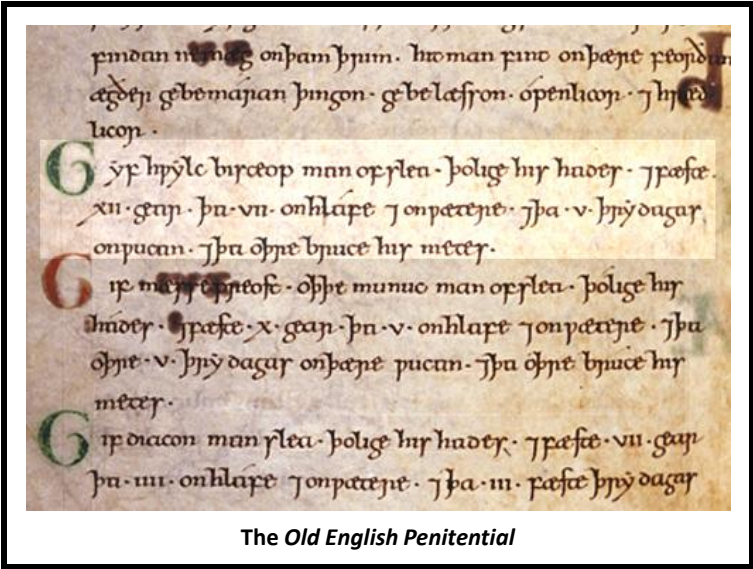 findan ne mæg on þam þrim · hit man fint on þære feorðan
ægðer ge be maran þingon · ge be læsson · openlicon · ⁊
licon ·
Gyf hwylc bisceop man ofslea · þolige his hades · ⁊ fæste ·
xii · gear · þa · vii · on hlafe ⁊ on wætere · ⁊ þa · v · þrẏ dagas
on wucan · ⁊ þa oþre bruce his metes ·
Gif mæssepreost · oþþe munuc man ofslea · þolige his
hades · ⁊ fæste · x · gear · þa · v · on hlafe ⁊ on wætere · ⁊ þa
oþre · v · þrẏ dagas on þære wucan · ⁊ þa oþre bruce his
metes ·
Gif diacon man slea · þolige his hades · ⁊ fæste · vii · gear
þa · iiii · on hlafe ⁊ on wætere · ⁊ þa · iii · fæste þrẏ dagas
The Old English Penitential